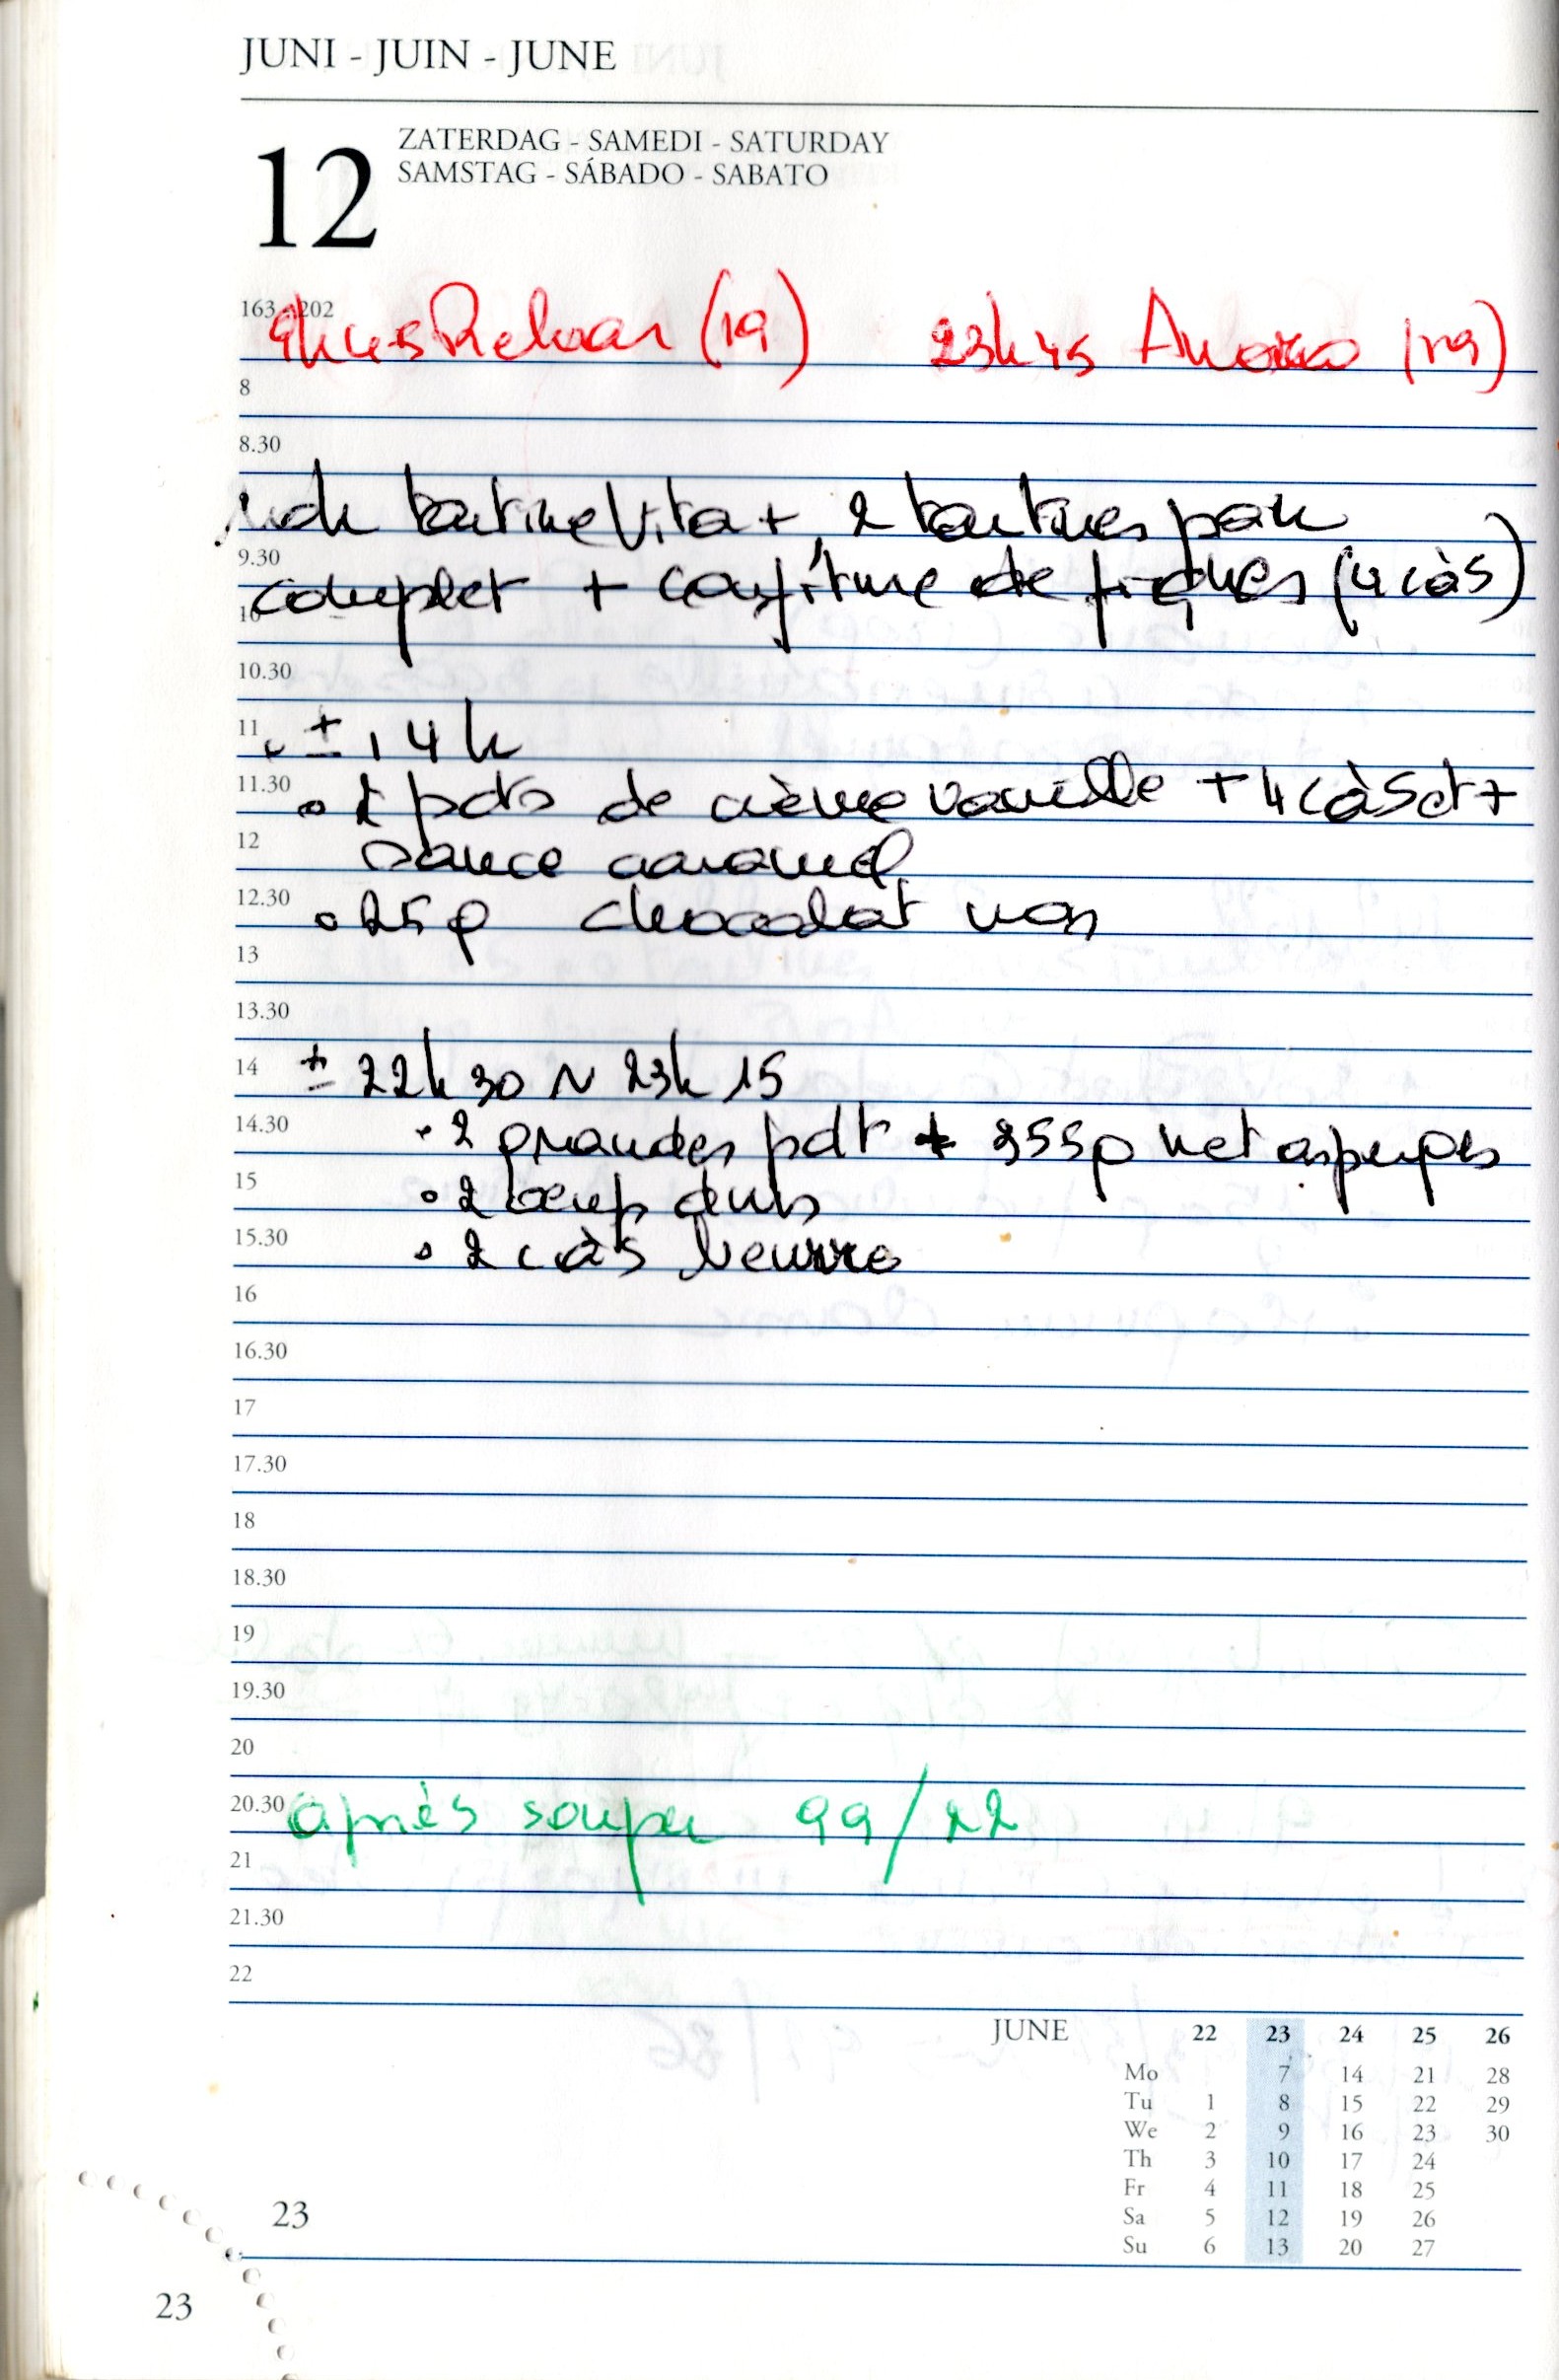 JUNI - JUIN - JUNE
12
ZATERDAG - SAMEDI - SATURDAY
SAMSTAG - SÁBADO - SABATO
163 - 202
9h45 (19) 23h45 (19)
8
8.30
tartine Vita + 2 tartines pain
9.30
complet + confiture de figues (4 càs)
10
10.30
11
± 14h
11.30
pots de crème vanille + 4 càs
12
sauce caramel
12.30
25g chocolat
13
13.30
14
± 22h30 ~ 23h15
14.30
2 grandes pdt + 355g net asperges
15
2 oeufs durs
15.30
2 càs beurre
16
16.30
17
17.30
18
18.30
19
19.30
20
20.30
après souper 99/22
21
21.30
22
JUNE 22 23 24 25 26
Mo 7 14 21 28
Tu 1 8 15 22 29
We 2 9 16 23 30
Th 3 10 17 24
Fr 4 11 18 25
Sa 5 12 19 26
Su 6 13 20 27
23
23